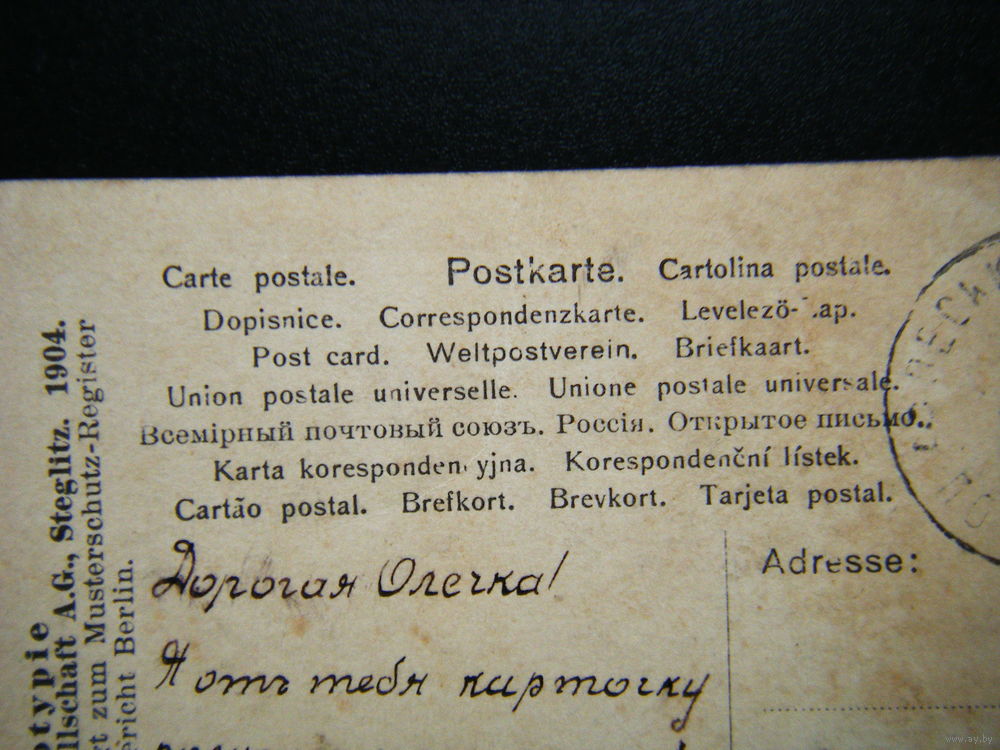 Carte postale. Postkarte. Cartolina postale.
Dopisnice. Correspondenzkarte. Levelező-Lap.
Post card. Weltpostverein. Briefkaart.
Union postale universelle. Unione postale universale.
Всемірный почтовый союзъ. Россія. Открытое письмо.
Karta korespondencyjna. Korespondenční lístek.
Cartão postal. Brefkort. Brevkort. Tarjeta postal.
Adresse:
Дорогая Олечка!
Я отъ тебя карточку
otypie
llschaft A.G., Steglitz. 1904.
rt zum Musterschutz-Register
ericht Berlin.
www.ay.by